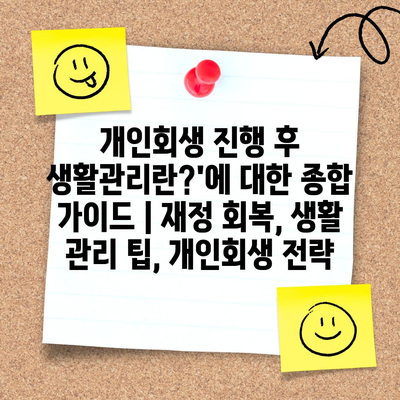 개인회생 진행 후
생활관리란?'에 대한 종합
가이드 | 재정 회복, 생활
관리 팁, 개인회생 전략